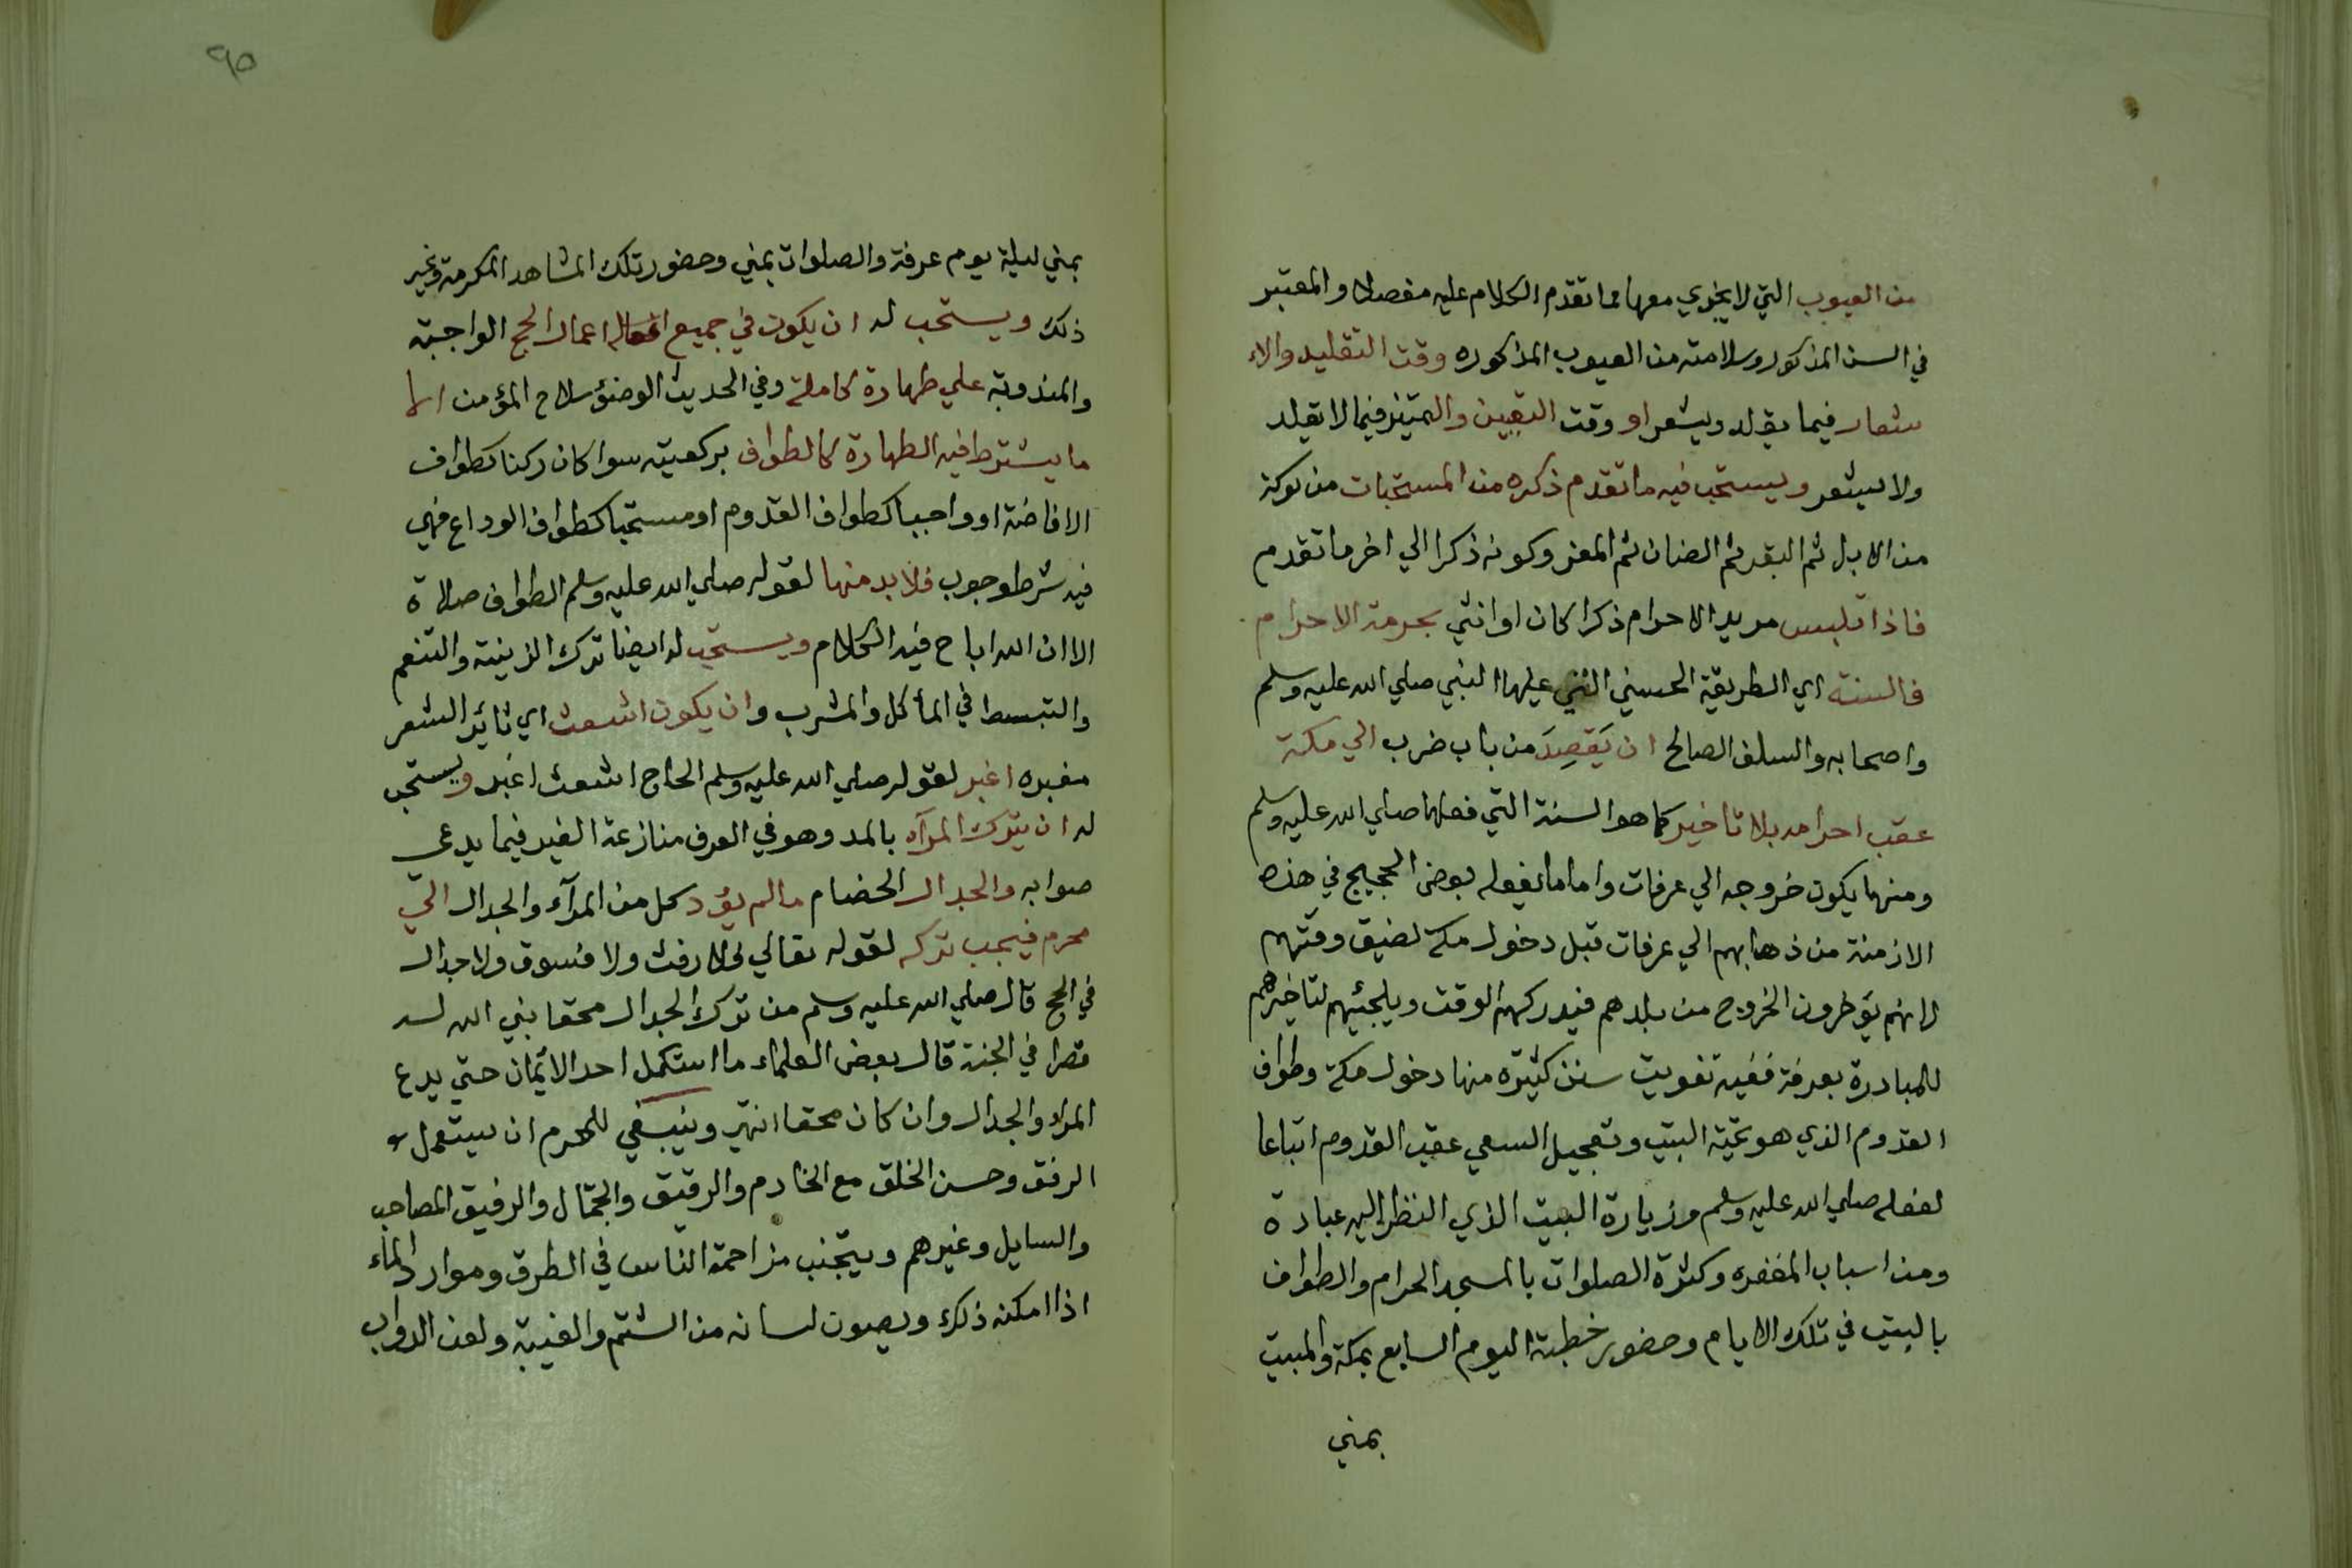 من العيوب التي لا يجزي معها مما تقدم الكلام عليه مفصلا والمعتبر
في السن المذكور وسلامته من العيوب المذكوره وقت التقليد والاء
شعار فيما يقلد ويشعر او وقت التعيين والتميز فيما لا يقلد
ولا يشعر ويستحب فيه ما تقدم ذكره من المستحبات من كونه
من الابل ثم البقر ثم الضان ثم المعز وكونه ذكرا الي اخر ما تقدم
فاذا تلبس مريد الاحرام ذكرا كان او انثي بحرمة الاحرام
فالسنة اي الطريقة الحسني التي عليها النبي صلي الله عليه وسلم
واصحابه والسلف الصالح ان يَقصِدَ من باب ضرب الي مكة
عقب احرامه بلا تاخير كما هو السنة التي فعلها صلي الله عليه وسلم
ومنها يكون خروجه الي عرفات واما ما يفعله بعض الحجيج في هذه
الازمنة من ذهابهم الي عرفات قبل دخول مكة لضيق وقتهم
لانهم يؤخرون الخروج من بلدهم فيدركهم الوقت ويلجئيهم لتاخيرهم
للمبادرة بعرفة ففيه تفويت سنن كثيره منها دخول مكة وطواف
القدوم الذي هو تحية البيت وتعجيل السعي عقب القدوم اتباعا
لفعله صلي الله عليه وسلم وزيارة البيت الذي النظر اليه عبادة
ومن اسباب المغفره وكثرة الصلوات بالمسجد الحرام والطواف
بالبيت في تلك الايام وحضور خطبة اليوم السابع بمكة والمبيت
بمني
٩٥
بمني ليلة يوم عرفة والصلوات بمني وحضور تلك المشاهد المكرمة وغير
ذلك ويستحب له ان يكون في جميع اعمال الحج الواجبة
والمندوبة علي طهارة كاملة وفي الحديث الوضؤ سلاح المؤمن اما
ما يشترط فيه الطهارة كالطواف بركعتيه سوا كان ركنا كطواف
الافاضة او واجبا كطواف القدوم او مستحبا كطواف الوداع فهي
فيه شرط وجوب فلا بد منها لقوله صلي الله عليه وسلم الطواف صلاة
الا ان الله اباح فيه الكلام ويستحب له ايضا ترك الزينة والتنعم
والتبسط في المأكل والمشرب وان يكون اشعث اي ثائر الشعر
مغبره اغبر لقوله صلي الله عليه وسلم الحاج اشعث اغبر ويستحب
له ان يترك المرآء بالمد وهو في العرف منازعة الغير فيما يدعي
صوابه والجدال الخصام ما لم يؤد كل من المرآء والجدال الي
محرم فيجب تركه لقوله تعالي فلا رفث ولا فسوق ولا جدال
في الحج قال صلي الله عليه وسلم من ترك الجدال محقا بني الله له
قصرا في الجنة قال بعض العلماء ما استكمل احد الأيمان حتي يدع
المراء والجدال وان كان محقا انتهي وينبغي للمحرم ان يستعمل
الرفق وحسن الخلق مع الخادم والرقيق والجمّال والرفيق المصاحب
والسايل وغيرهم ويتجنب مزاحمة الناس في الطرق وموارد المآء
اذا امكنه ذلك ويصون لسانه من الشتم والغيبة ولعن الدواب